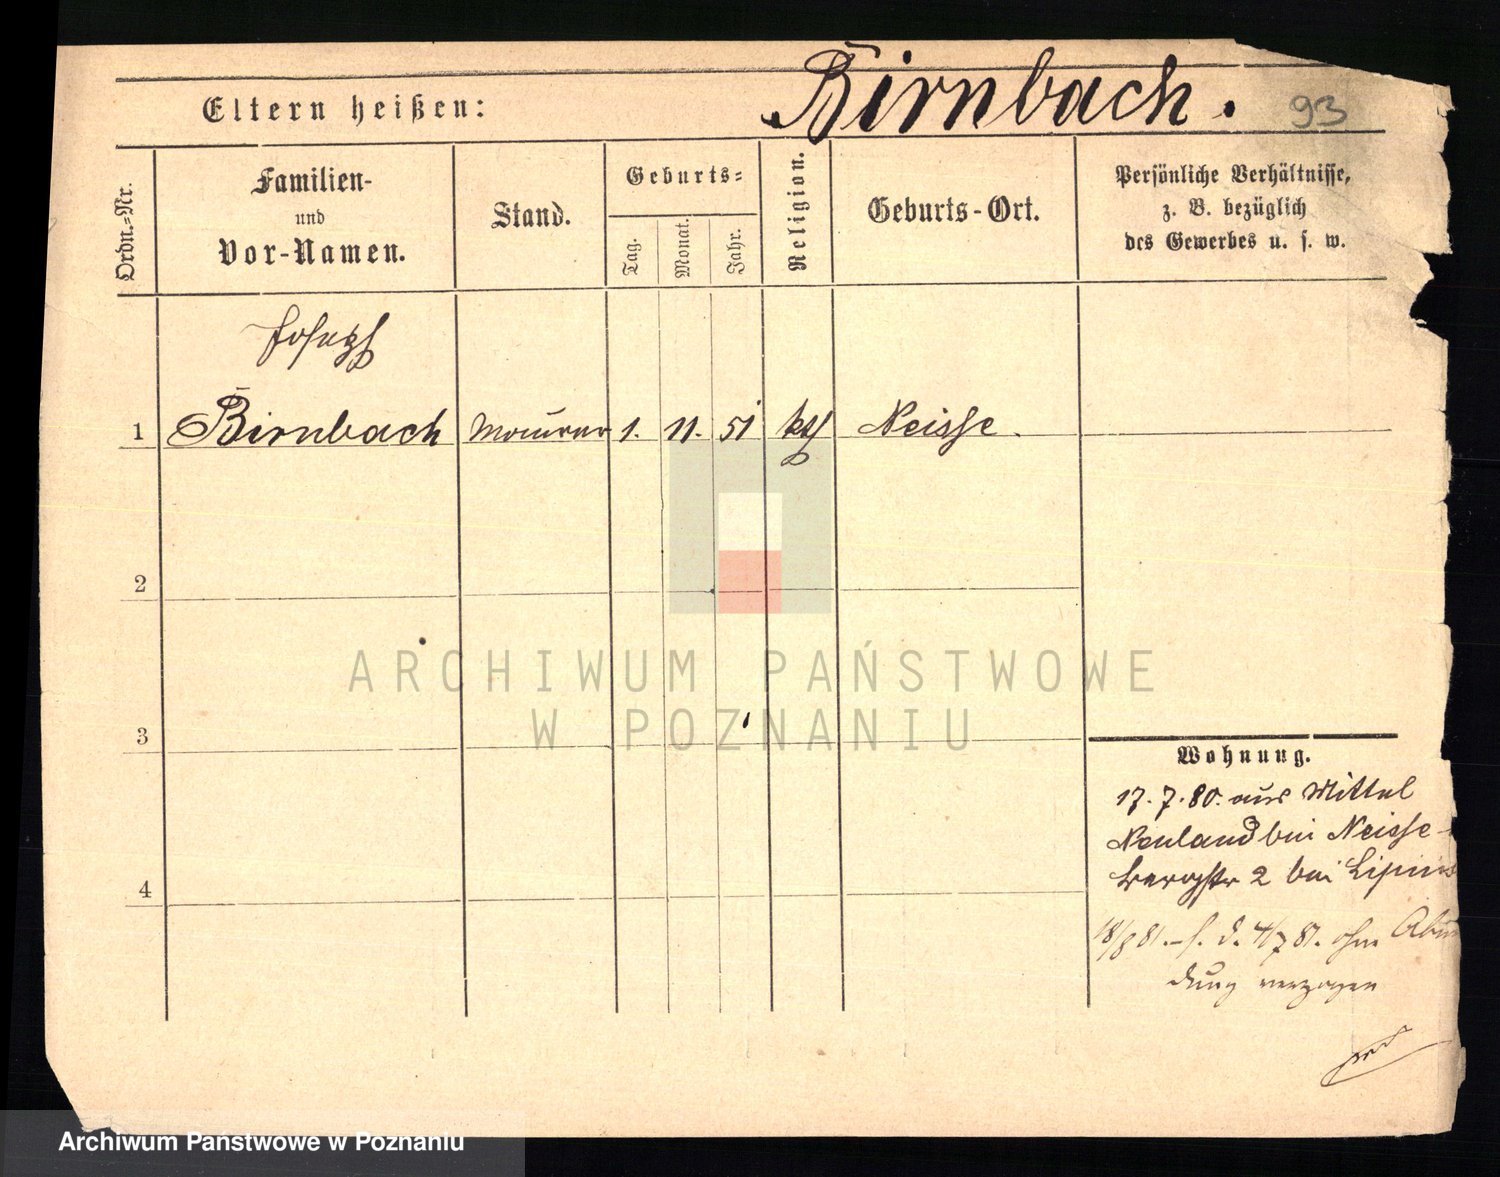 Birnbach. 93
Eltern heißen:
Ordn.=Nr.
Familien-
und
Vor-Namen.
Stand.
Geburts=
Tag.
Monat.
Jahr.
Religion.
Geburts-Ort.
Persönliche Verhältnisse,
z. B. bezüglich
des Gewerbes u. s. w.
Joseph
1 Birnbach Maurer 1. 11. 51 kth Neisse.
2
ARCHIWUM PAŃSTWOWE
W POZNANIU
3
Wohnung.
17. 7. 80. aus Mittel
Neuland bei Neisse
Bergstr 2 bei
4
18/8 81. – s. d. 81. ohne
dung verzogen
Archiwum Państwowe w Poznaniu